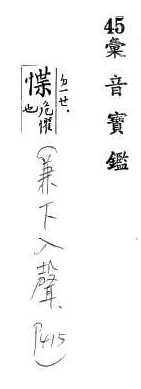 45彙音寶鑑
惵危懼也
(兼下入聲、P415)